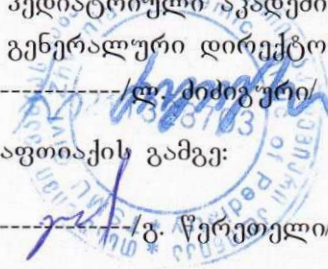 პედიატრიული აკადემი
გენერალური დირექტო
----------/ლ. ძიძიგური/
აფთიაქის გამგე:
----------/გ. წერეთელი/